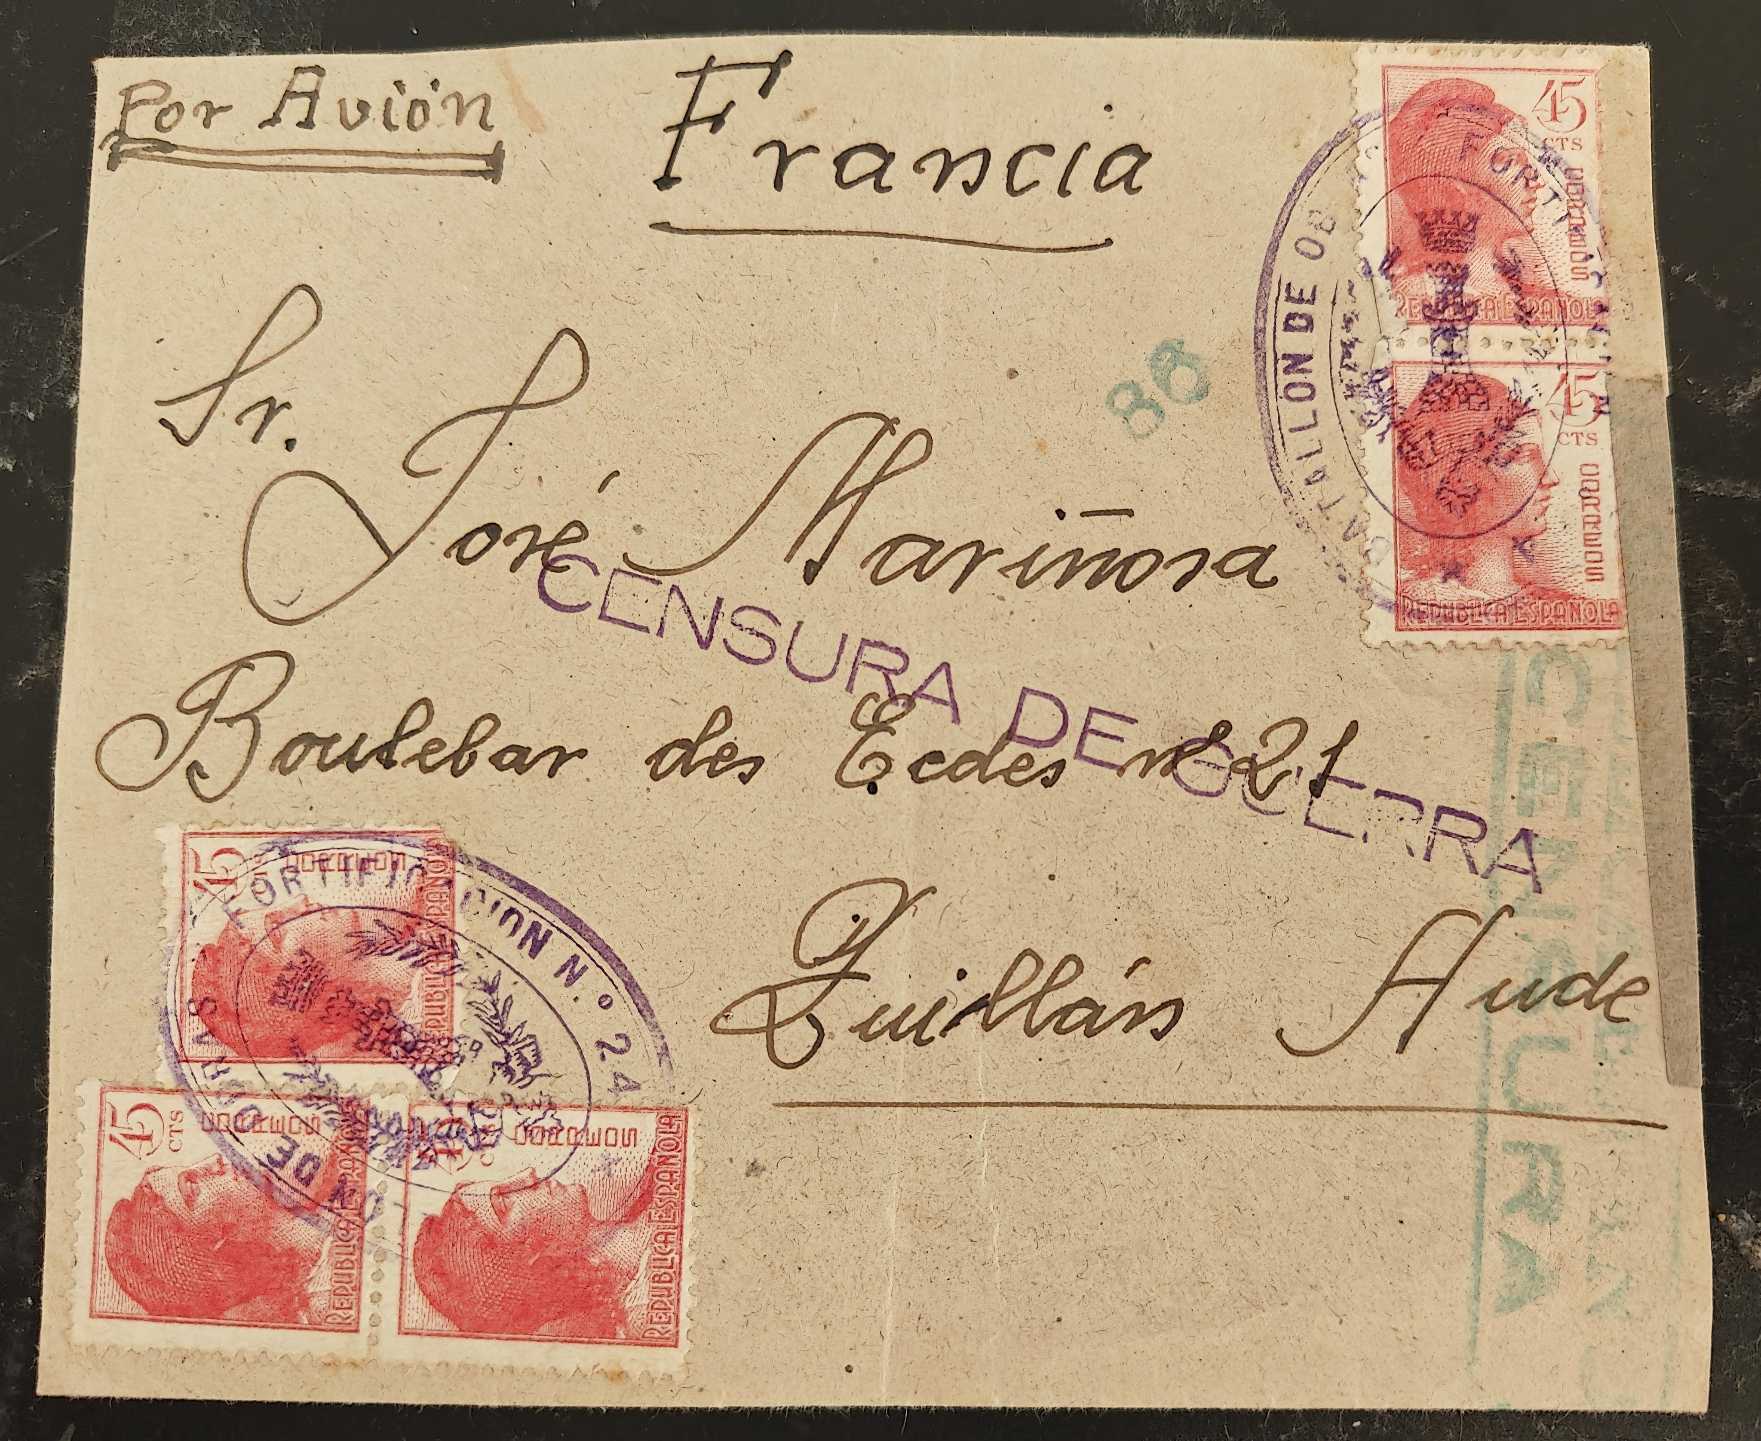 Por Avión
Francia
45
CTS
CORREOS
REPUBLICA ESPAÑOLA
45
CTS
CORREOS
REPUBLICA ESPAÑOLA
BATALLON DE OB
FORTI
86
Sr.
José Mariñosa
CENSURA DE GUERRA
Boulebar des Ecdes nº 21
Quillán Aude
CENSURA
45
CORREOS
REPUBLICA ESPAÑOLA
FORTIFICACION N.º 24
ON DE OBRAS
45
CTS
CORREOS
REPUBLICA ESPAÑOLA
45
CORREOS
REPUBLICA ESPAÑOLA